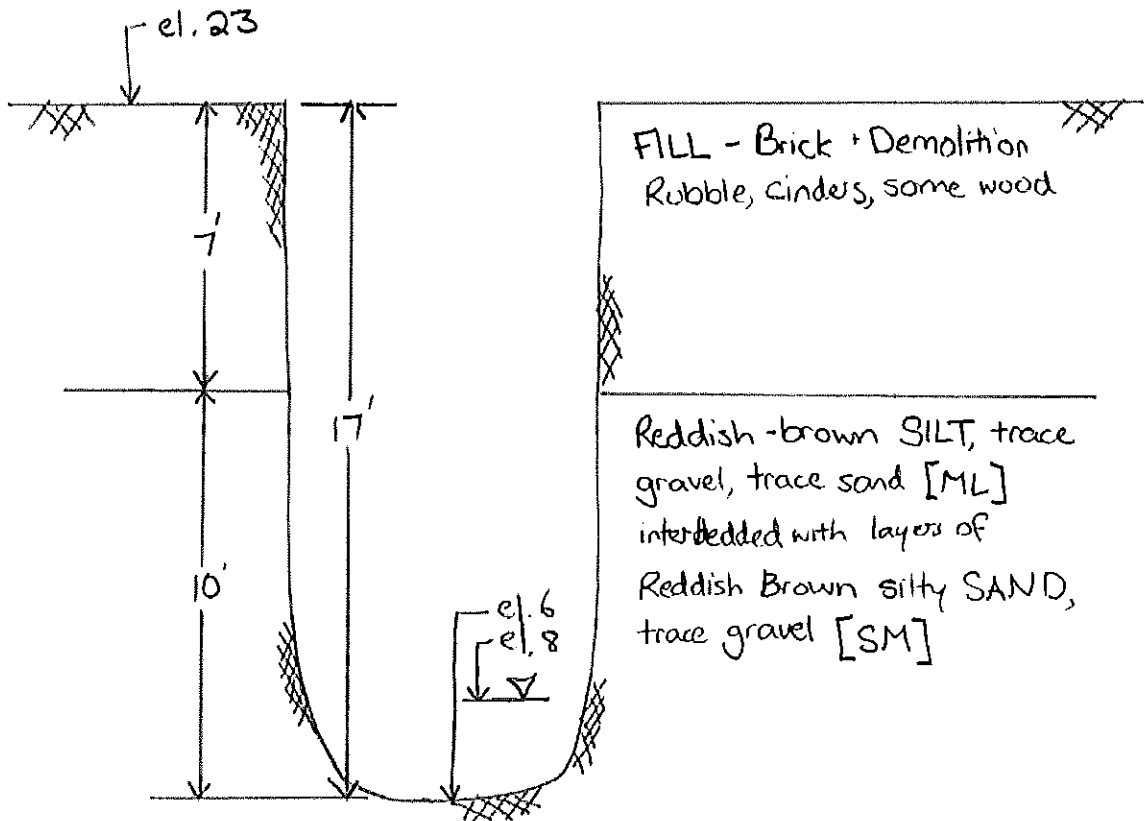 el. 23
FILL - Brick + Demolition
Rubble, cinders, some wood
7'
17'
Reddish-brown SILT, trace
gravel, trace sand [ML]
interbedded with layers of
Reddish Brown silty SAND,
trace gravel [SM]
10'
el. 6
el. 8